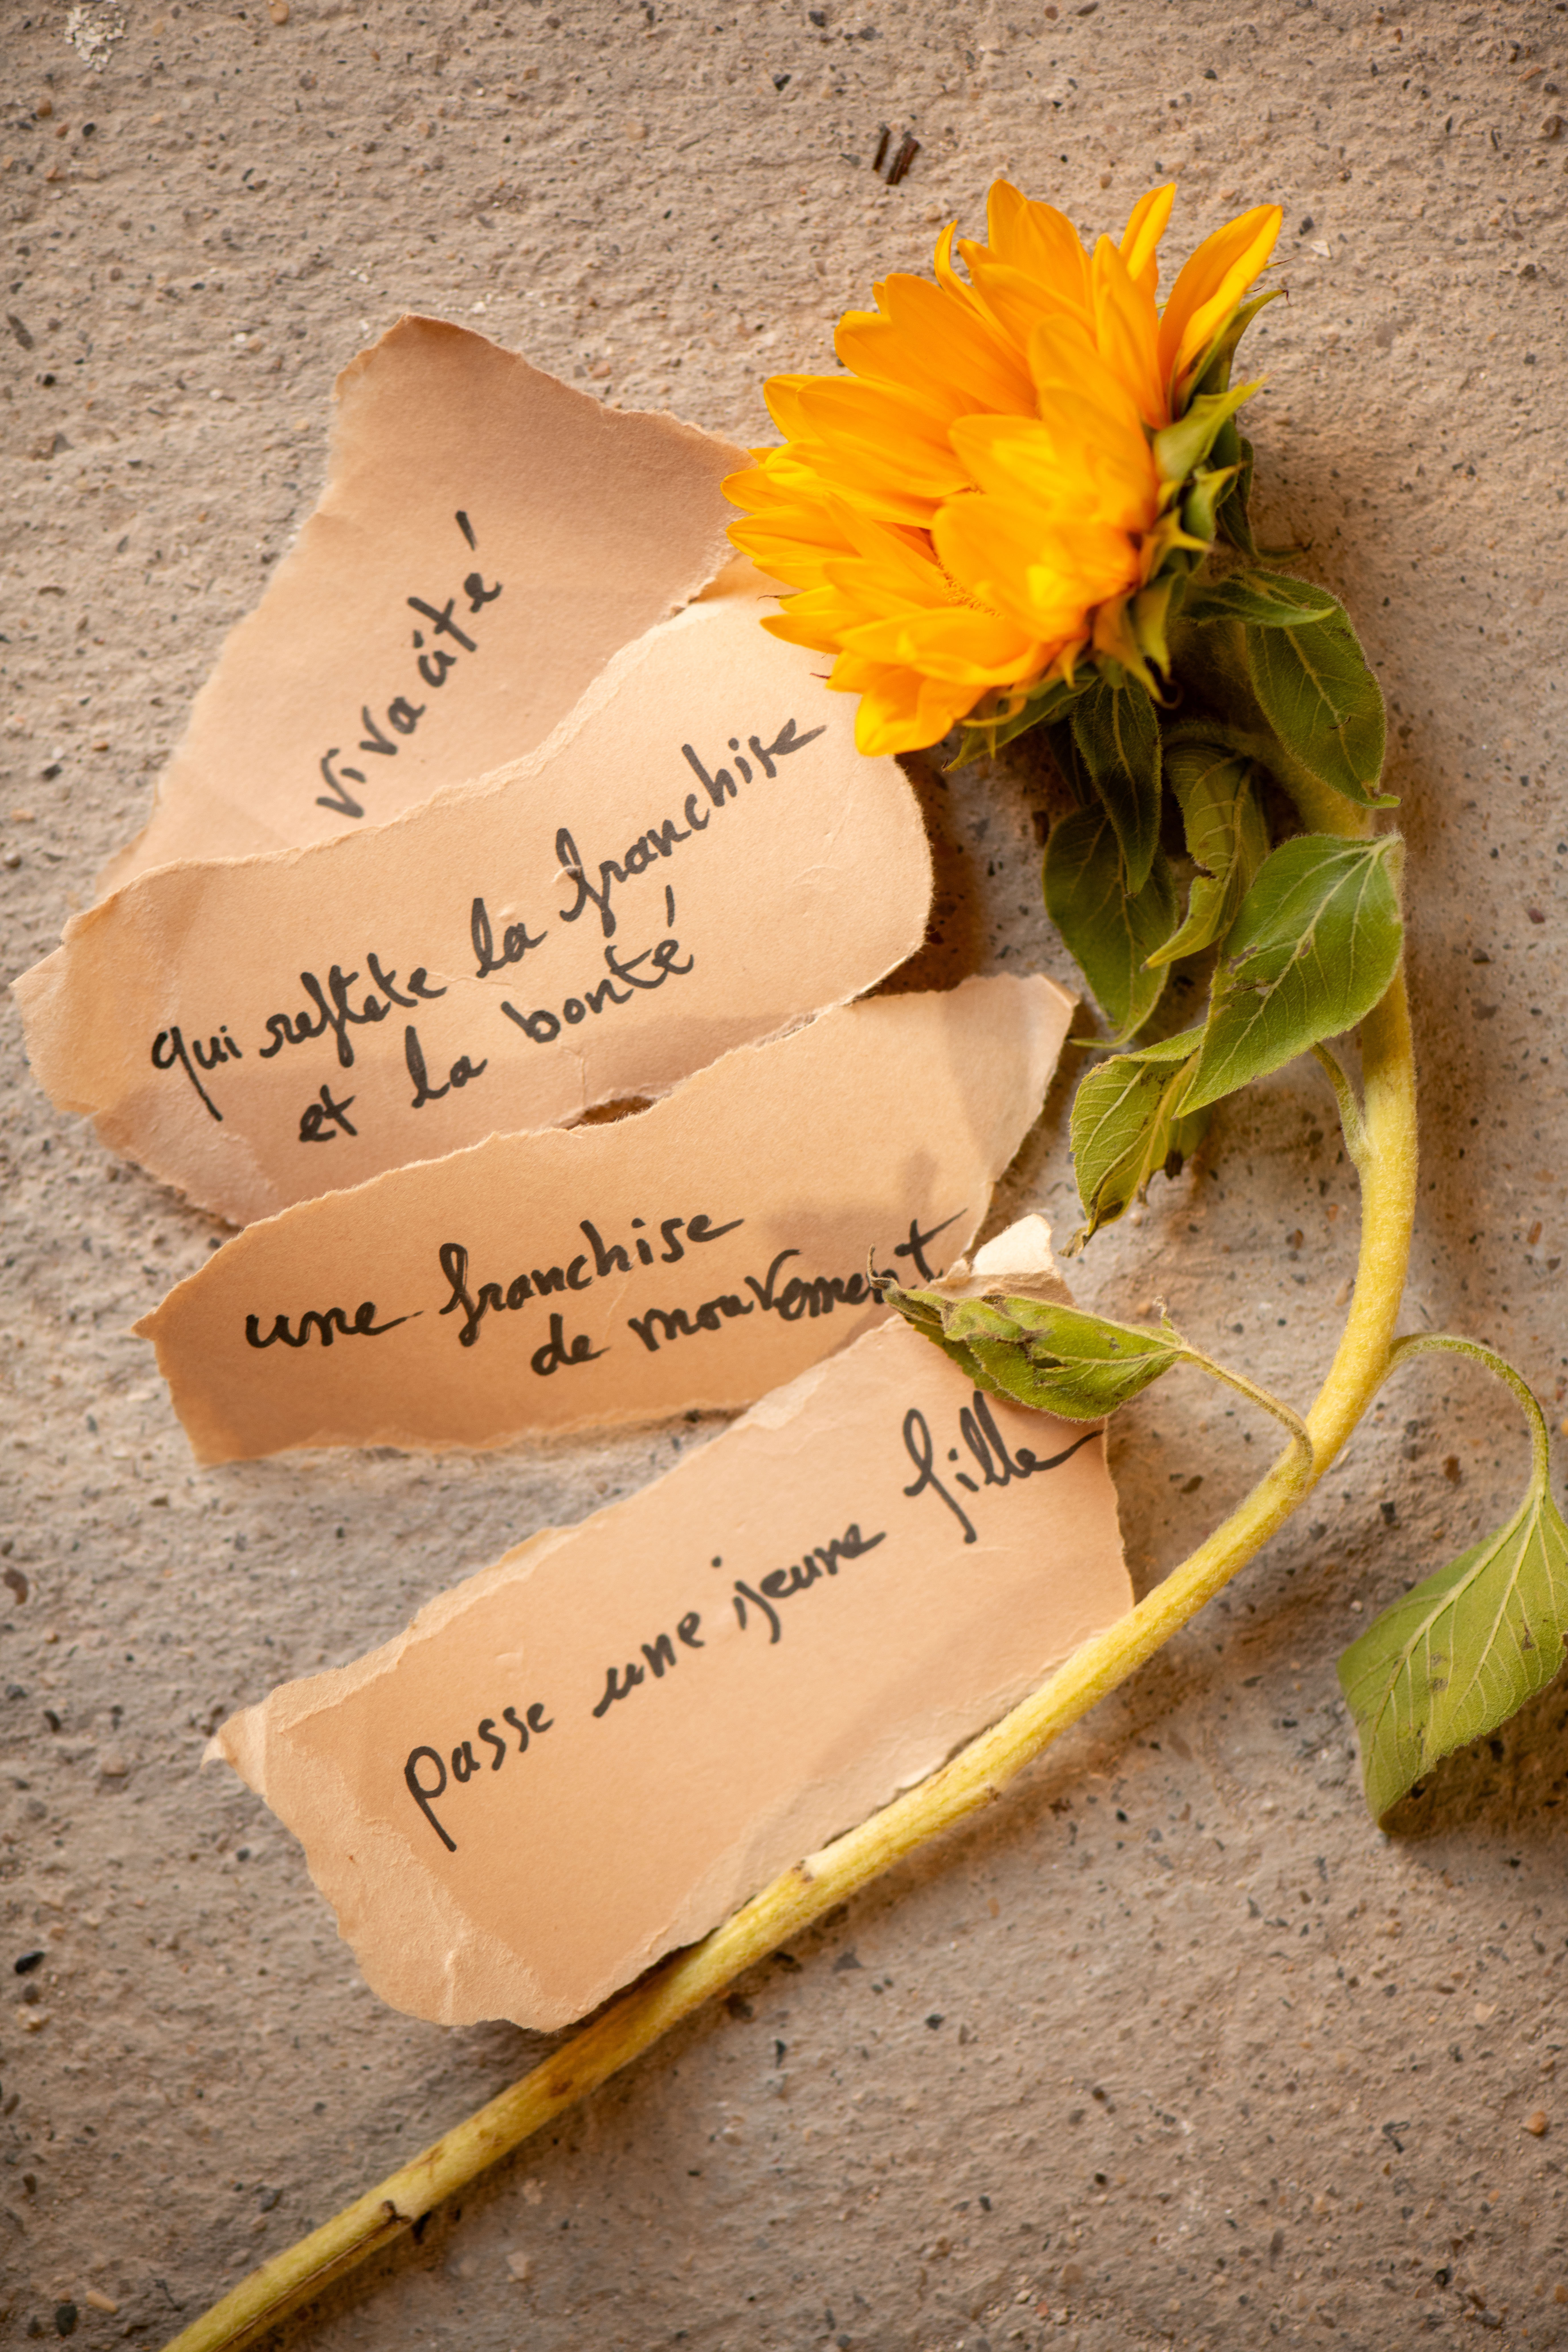 vivacité
qui reflète la franchise
et la bonté
une franchise
de mouvement
passe une jeune fille